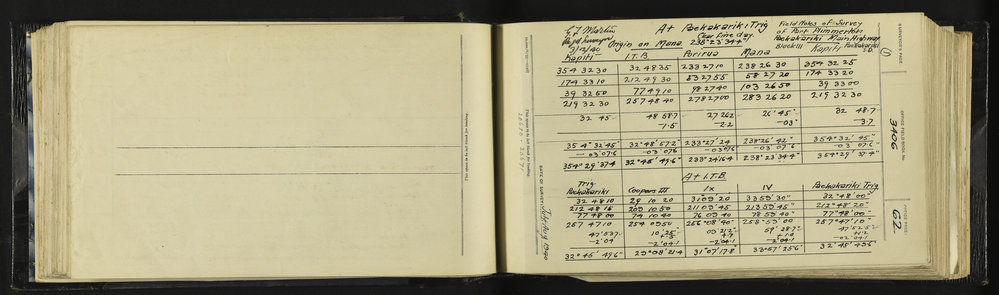 At Paekakariki Trig
Clear fine day.
Origin on Mana 238°23'34"4
E J Martin
Regd Surveyor
3/12/40
Field Notes of Survey
of Part Plimmerton
Paekakariki Main Highway
Block III Kapiti Paekakariki S.D.
Kapiti I.T.B. Porirua Mana Kapiti
354 32 30 32 48 35 233 27 10 238 26 30 354 32 25
174 33 10 212 49 30 53 27 55 58 27 20 174 33 20
39 32 50 77 49 10 98 27 40 103 26 50 39 33 00
219 32 30 257 48 40 278 27 00 283 26 20 219 32 30
32 45 48 58.7 27 26.2 26' 45" 32 48.7
-1.5 -2.2 -03" -3.7
354°32'45" 32°48'57.2 233°27'24 238°26'42" 354°32'45"
-03 07.6 -03 07.6 -03 07.6 -03 07.6 -03 07.6
354°29'37.4 32°45'49.6 233°24'16.4 238°23'34.4" 354°29'37.4"
At I.T.B.
Trig Paekakariki Coopers III IX IV Paekakariki Trig
32 48 10 29 10 20 31 09 20 33 59'30" 32°48'00"
212 48 15 209 10 50 211 09'45 213 59'45" 212°48'20"
77 48 00 74 10 40 76 09 40 78 59'40" 77°48'00"
257 47 10 254 09 50 256°08'40" 258°59'00 257°47'10"
-2'04.1 -2'04.1 -2'04.1 -02'04.1
32°45'49.6" 29°08'21.4 31°07'17.8 33°57'25.6" 32°45'49.6"
DATE OF SURVEY: July/Aug 1940
OFFICE FIELD BOOK No.
3406
62